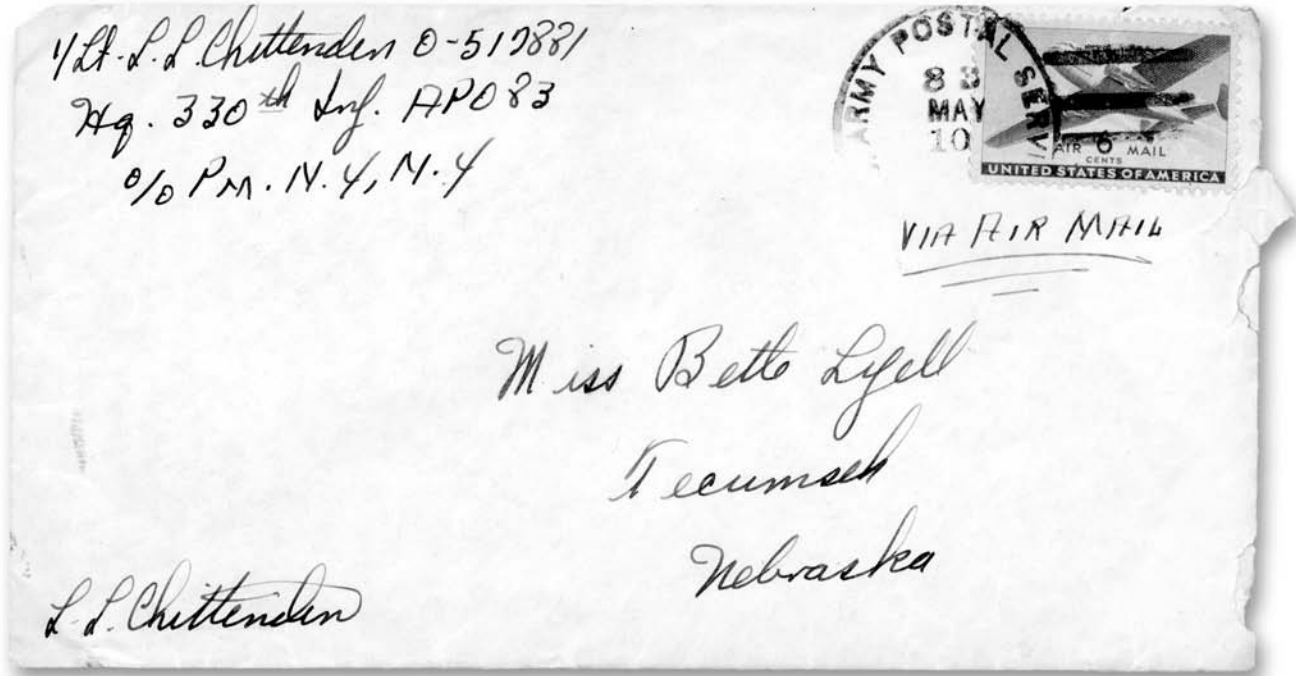 1/Lt. L. L. Chittenden O-517881
Hq. 330th Inf. APO 83
c/o P.M. N.Y., N.Y
ARMY POSTAL SERV
MAY
10
AIR 6 MAIL
CENTS
UNITED STATES OF AMERICA
VIA AIR MAIL
Miss Bette Lyell
Tecumseh
Nebraska
L. L. Chittenden